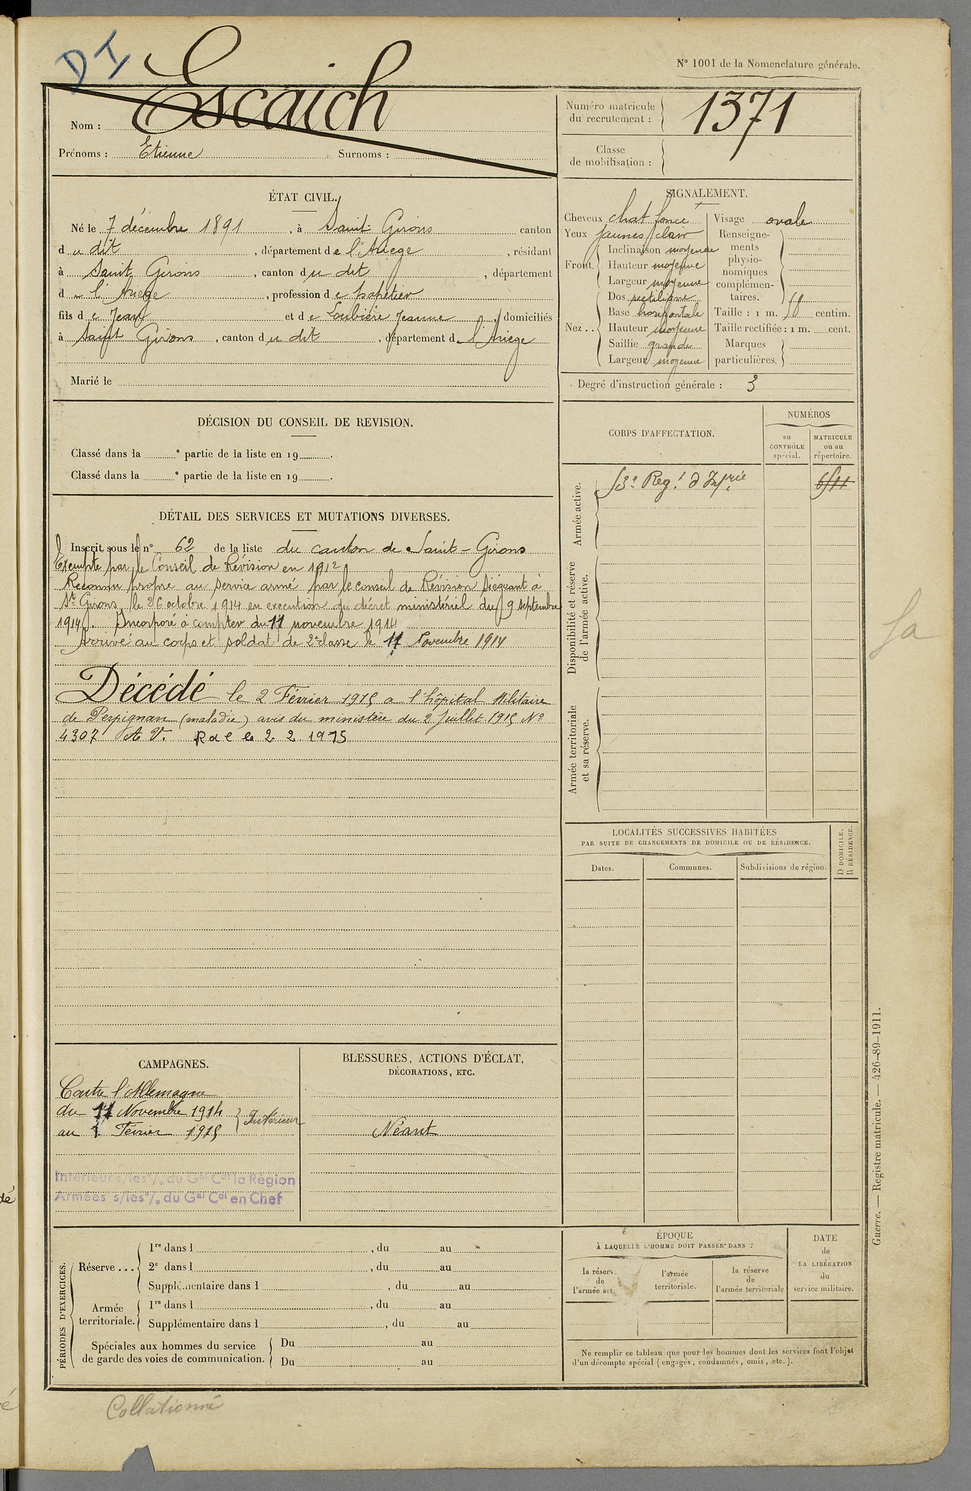 D I
N° 1001 de la Nomenclature générale.
Nom : Escaich
Prénoms : Etienne Surnoms :
Numéro matricule du recrutement : 1371
Classe de mobilisation :
ÉTAT CIVIL.
Né le 7 décembre 1891, à Saint Girons canton
du dit, département de l'Ariège, résidant
à Saint Girons, canton du dit, département
d l'Ariège, profession de
fils de Jean et de Loubière Jeanne domiciliés
à Saint Girons, canton du dit, département d l'Ariège
Marié le
SIGNALEMENT.
Cheveux chat foncé
Yeux jaunes clair
Front. Inclinaison moyenne
Hauteur moyenne
Largeur moyenne
Nez . . Dos rectiligne
Base horizontale
Hauteur moyenne
Saillie grande
Largeur moyenne
Visage ovale
Renseignements physionomiques complémentaires.
Taille : 1 m. centim.
Taille rectifiée : 1 m. cent.
Marques particulières.
Degré d'instruction générale : 3
DÉCISION DU CONSEIL DE REVISION.
Classé dans la e partie de la liste en 19 .
Classé dans la e partie de la liste en 19 .
CORPS D'AFFECTATION.
NUMÉROS
au CONTRÔLE spécial.
MATRICULE ou au répertoire.
Armée active.
53e Regt d'Infrie
Disponibilité et réserve de l'armée active.
Armée territoriale et sa réserve.
DÉTAIL DES SERVICES ET MUTATIONS DIVERSES.
Inscrit sous le n° 62 de la liste du canton de Saint-Girons
Exempté par le Conseil de Révision en 1912
Reconnu propre au service armé par le conseil de Révision siégeant à
St Girons, le 26 octobre 1914 en exécution du décret ministériel du 9 septembre
1914. Incorporé à compter du 11 novembre 1914
Arrivé au corps et soldat de 2e classe le 11 Novembre 1914
Décédé le 2 Février 1915 a l'hôpital Militaire
de Perpignan (maladie) avis du ministère du 2 juillet 1915 N°
4307 A V. R d C le 2 2 1915
LOCALITÉS SUCCESSIVES HABITÉES
PAR SUITE DE CHANGEMENTS DE DOMICILE OU DE RÉSIDENCE.
Dates. Communes. Subdivisions de région.
D DOMICILE. R RÉSIDENCE.
CAMPAGNES.
Contre l'Allemagne
du 11 Novembre 1914
au Février 1915
Intérieur
Intérieur s/les o/. du Gal Cdt la Région
Armées s/les o/. du Gal Cdt en Chef
BLESSURES, ACTIONS D'ÉCLAT,
DÉCORATIONS, ETC.
Néant
PÉRIODES D'EXERCICES.
Réserve . . . 1re dans l , du au
2e dans l , du au
Supplémentaire dans l , du au
Armée territoriale. 1re dans l , du au
Supplémentaire dans l , du au
Spéciales aux hommes du service de garde des voies de communication. Du au
Du au
ÉPOQUE
À LAQUELLE L'HOMME DOIT PASSER DANS :
la réserve de l'armée act.
l'armée territoriale.
la réserve de l'armée territoriale
DATE de LA LIBÉRATION du service militaire.
Ne remplir ce tableau que pour les hommes dont les services font l'objet
d'un décompte spécial (engagés, condamnés, omis, etc.).
Guerre. — Registre matricule. — 426-89-1911.
Collationné